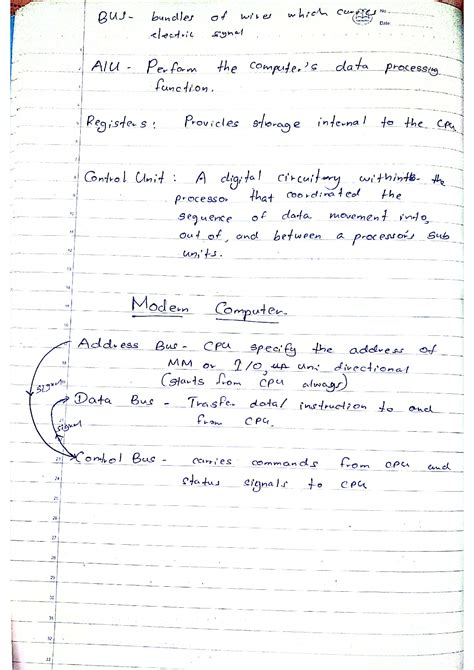 BUS - bundles of wires which carries
electric signal
No.
Date:
AlU - Perform the computer's data processing
function.
Registers : Provides storage internal to the CPU
Control Unit : A digital circuitory within the
processor that coordinated the
sequence of data movement into,
out of, and between a processor's sub
units.
Modern Computer.
Address Bus - CPU specify the address of
MM or I/O, uni directional
(starts from CPU always)
signal
Data Bus - Trasfer data/ instruction to and
from CPU.
signal
Control Bus - carries commands from CPU and
status signals to CPU